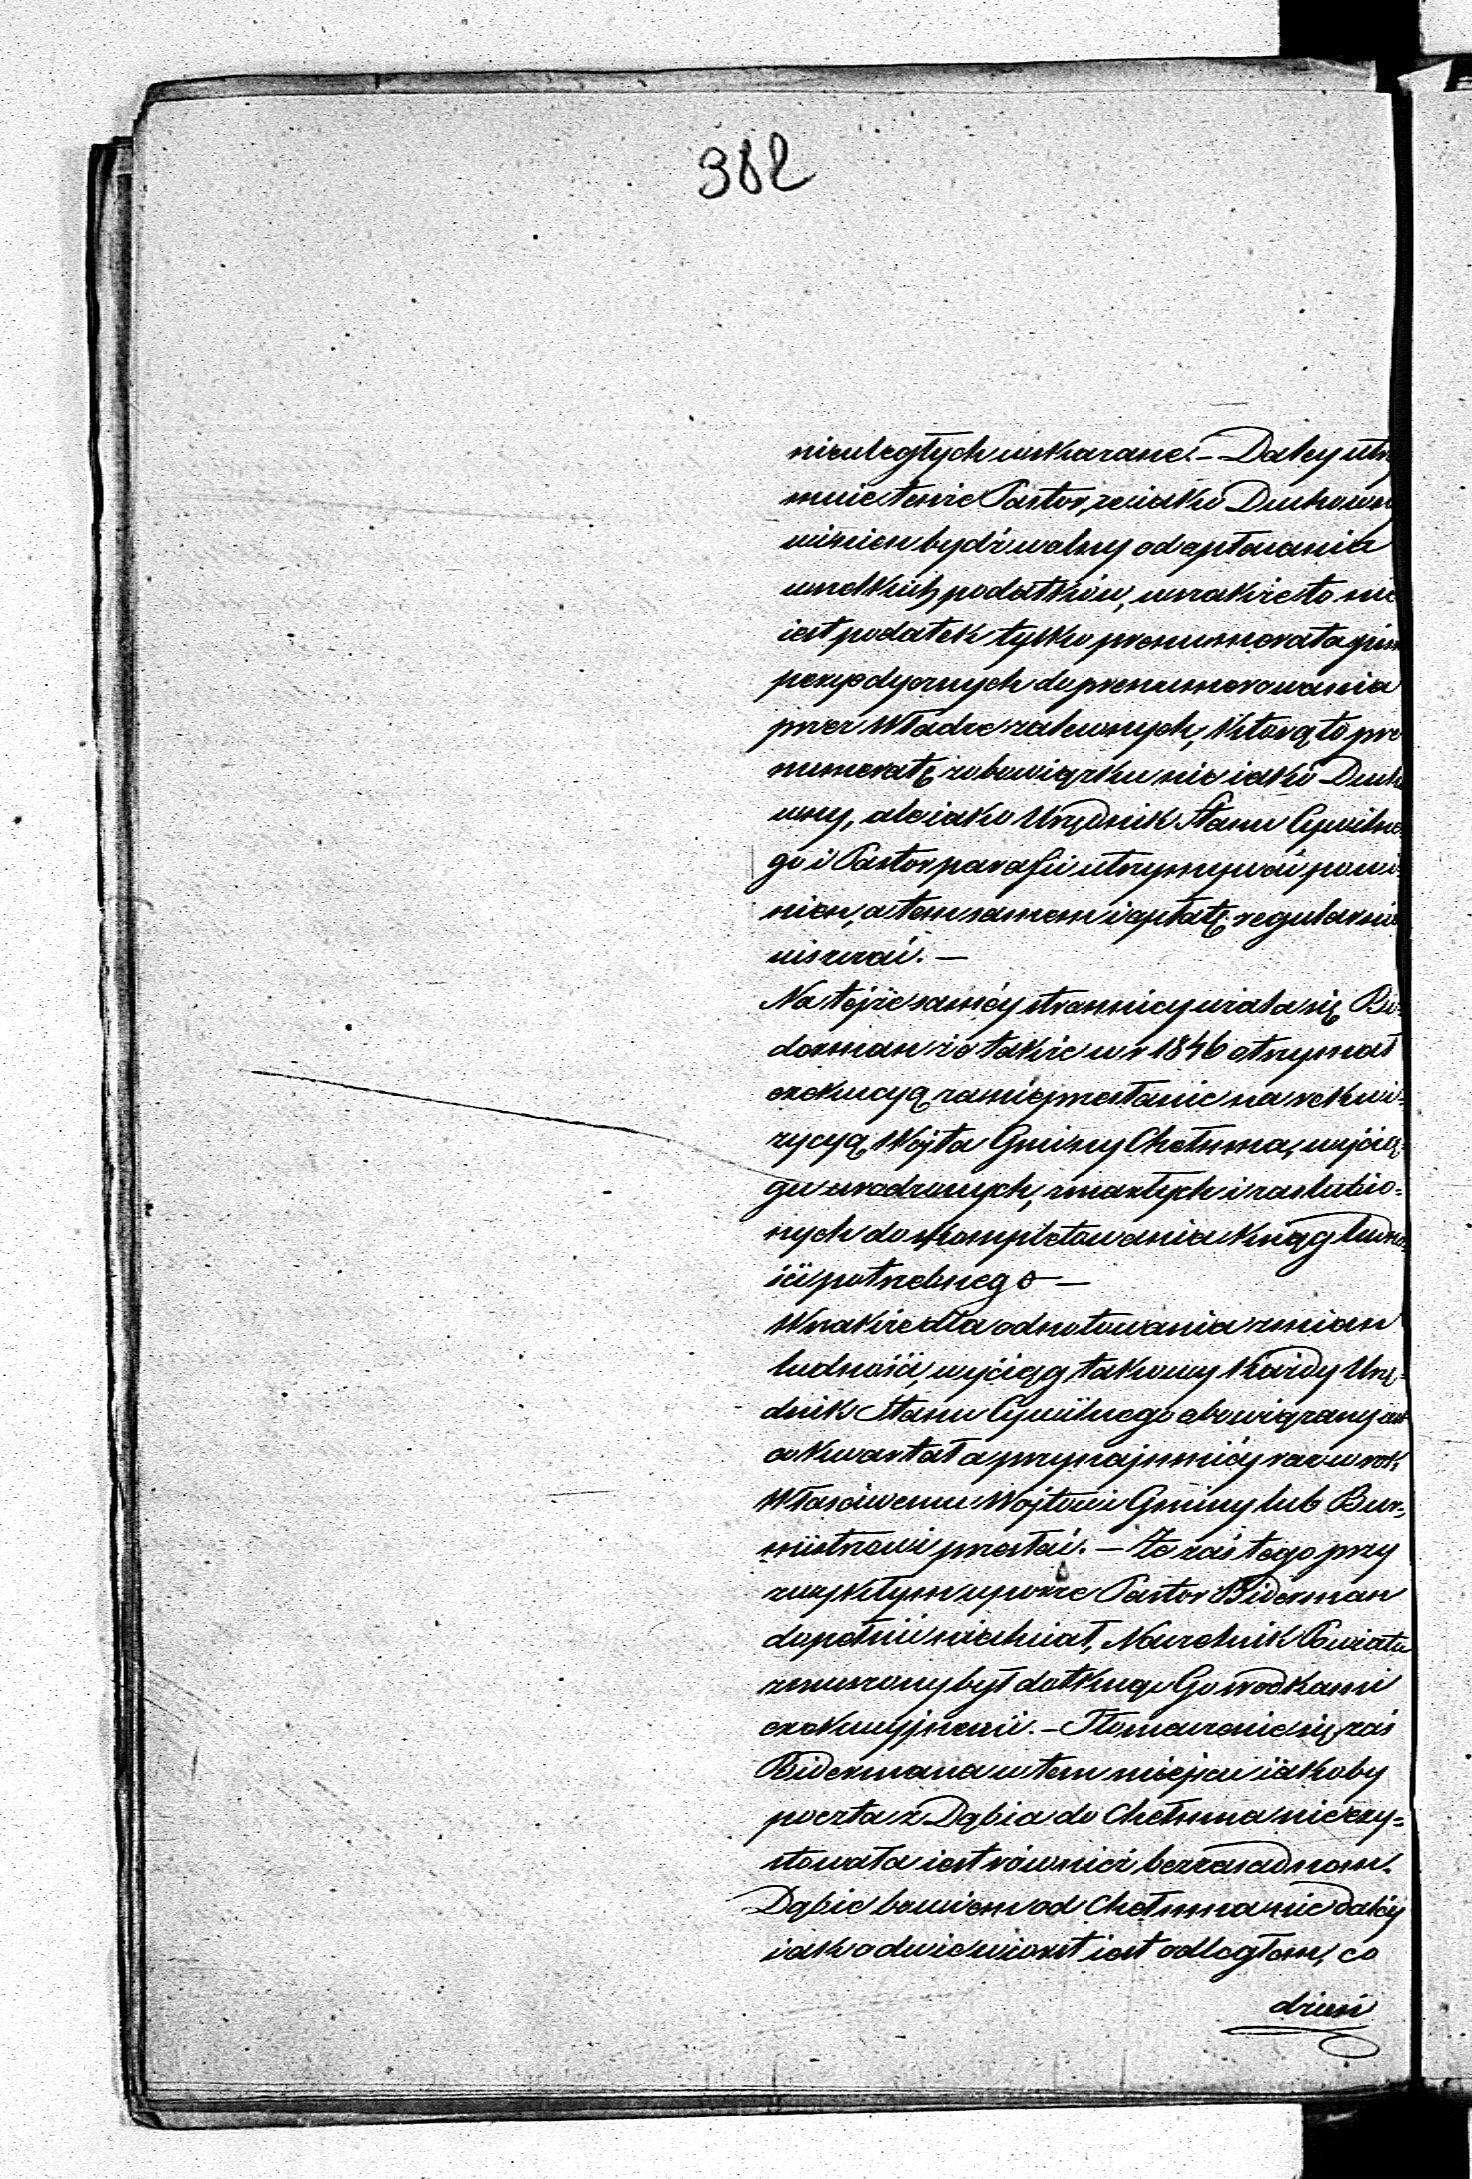 382
nieuległych wskazane. – Daley utrzy
muie tenże Pastor, że iako Duchowny
winien bydź wolny od opłacania
wszelkich podatków, wszakże to nie
iest podatek tylko prenumerata pism
peryodycznych do prenumerowania
przez Władze zalecanych, którą to pre
numeratę z obowiązku nie iako Ducho
wny, ale iako Urzędnik Stanu Cywilne
go i Pastor parafii utrzymywać powi-
nien, a tem samem i opłatę regularnie
uiszczać. –
Na tejże saméy stronnicy użala się Bi-
derman że także w r 1846 otrzymał
exekucyą za nieprzesłanie na rekwi-
zycyą Wójta Gminy Chełmna, wycią-
gu urodzonych, zmarłych i zaślubio=
nych do skompletowania Ksiąg ludno-
ści potrzebnego –
Wszakże dla odnotowania zmian
ludności, wyciąg takowy każdy Urzę-
dnik Stanu Cywilnego obowiązany
co kwartał a przynajmniéy raz w rok,
Właściwemu Wójtowi Gminy lub Bur-
mistrzowi przesłać. – Że zaś tego przy
zwykłym uporze Pastor Biderman
dopełnić niechciał, Naczelnik Powiatu
zmuszony był dotknąć Go środkami
exekucyjnemi. – Tłomaczenie się zaś
Bidermana w tem miejscu iakoby
poczta z Dąbia do Chełmna nieexy=
stowała iest również bezzasadnem.
Dąbie bowiem od Chełmna nie daléy
iako dwie wiorst iest odległem, co
dzień